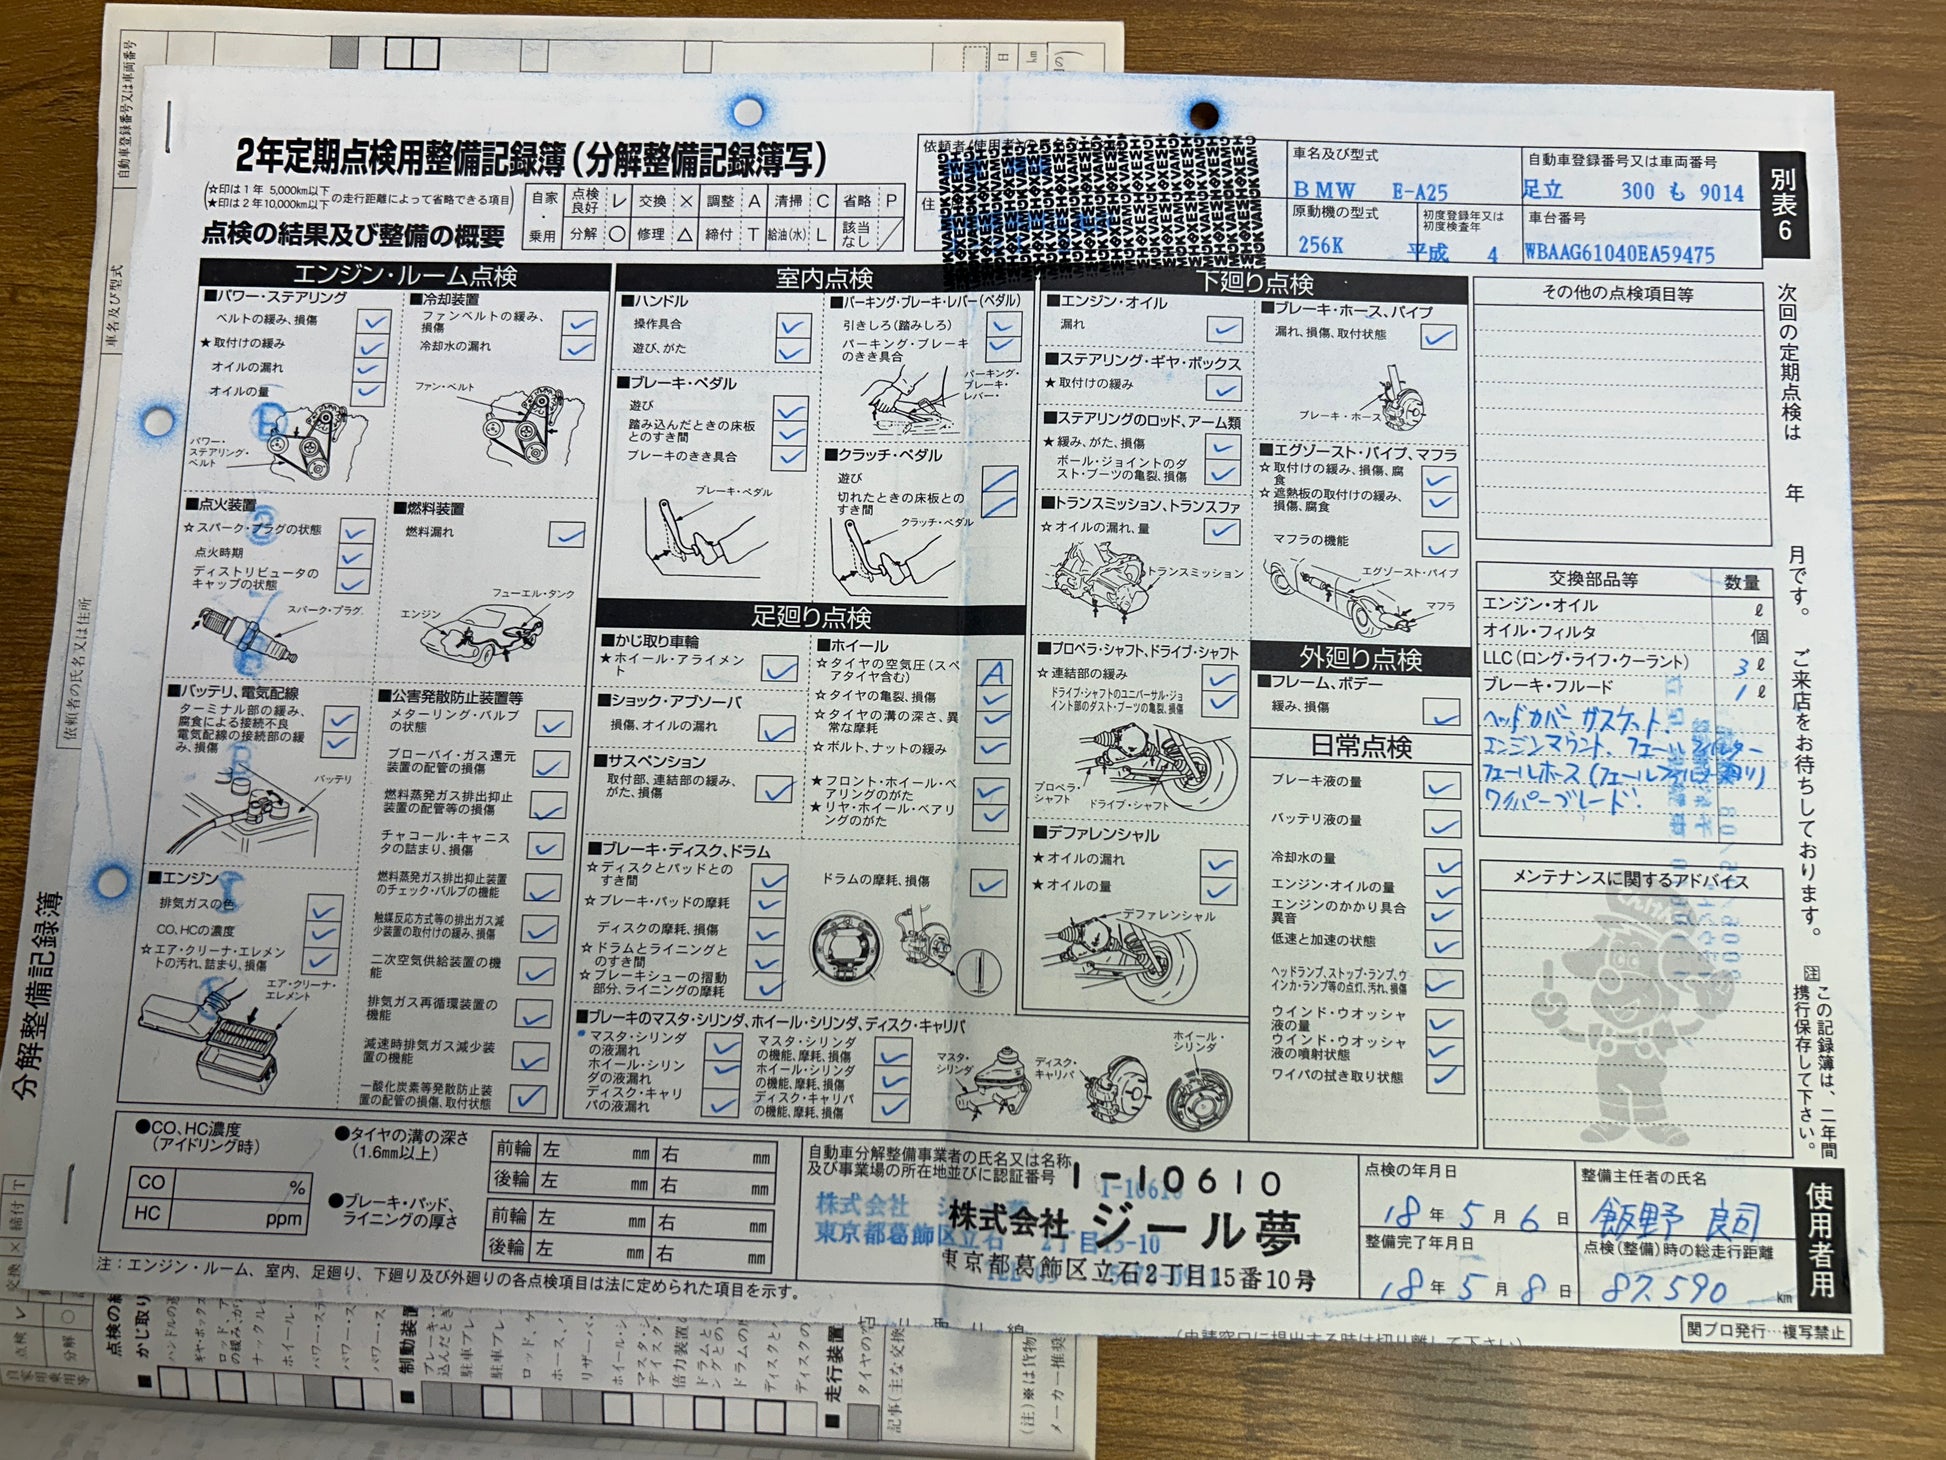 2年定期点検用整備記録簿(分解整備記録簿写)
(☆印は1年 5,000km以下
★印は2年10,000km以下の走行距離によって省略できる項目)
点検の結果及び整備の概要
自家・乗用
点検良好 レ 交換 × 調整 A 清掃 C 省略 P
分解 ○ 修理 △ 締付 T 給油(水) L 該当なし /
車名及び型式
BMW E-A25
自動車登録番号又は車両番号
足立 300 も 9014
原動機の型式
256K
初度登録年又は
初度検査年
平成 4
車台番号
WBAAG61040EA59475
別表6
エンジン・ルーム点検
■パワー・ステアリング
ベルトの緩み、損傷
★取付けの緩み
オイルの漏れ
オイルの量
パワー・
ステアリング・
ベルト
■冷却装置
ファンベルトの緩み、
損傷
冷却水の漏れ
ファン・ベルト
■点火装置
☆スパーク・プラグの状態
点火時期
ディストリビュータの
キャップの状態
スパーク・プラグ
■燃料装置
燃料漏れ
フューエル・タンク
エンジン
■バッテリ、電気配線
ターミナル部の緩み、
腐食による接続不良
電気配線の接続部の緩
み、損傷
バッテリ
■公害発散防止装置等
メターリング・バルブ
の状態
ブローバイ・ガス還元
装置の配管の損傷
燃料蒸発ガス排出抑止
装置の配管等の損傷
チャコール・キャニス
タの詰まり、損傷
燃料蒸発ガス排出抑止装置
のチェック・バルブの機能
触媒反応方式等の排出ガス減
少装置の取付けの緩み、損傷
二次空気供給装置の機
能
排気ガス再循環装置の
機能
減速時排気ガス減少装
置の機能
一酸化炭素等発散防止装
置の配管の損傷、取付状態
■エンジン
排気ガスの色
CO、HCの濃度
☆エア・クリーナ・エレメン
トの汚れ、詰まり、損傷
エア・クリーナ・
エレメント
室内点検
■ハンドル
操作具合
遊び、がた
■ブレーキ・ペダル
遊び
踏み込んだときの床板
とのすき間
ブレーキのきき具合
ブレーキ・ペダル
■パーキング・ブレーキ・レバー(ペダル)
引きしろ(踏みしろ)
パーキング・ブレーキ
のきき具合
パーキング・
ブレーキ・
レバー
■クラッチ・ペダル
遊び
切れたときの床板との
すき間
クラッチ・ペダル
足廻り点検
■かじ取り車輪
★ホイール・アライメン
ト
■ショック・アブソーバ
損傷、オイルの漏れ
■サスペンション
取付部、連結部の緩み、
がた、損傷
■ホイール
☆タイヤの空気圧(スペ
アタイヤ含む) A
☆タイヤの亀裂、損傷
☆タイヤの溝の深さ、異
常な摩耗
☆ボルト、ナットの緩み
★フロント・ホイール・ベ
アリングのがた
★リヤ・ホイール・ベアリ
ングのがた
■ブレーキ・ディスク、ドラム
☆ディスクとパッドとの
すき間
☆ブレーキ・パッドの摩耗
ディスクの摩耗、損傷
☆ドラムとライニングと
のすき間
☆ブレーキシューの摺動
部分、ライニングの摩耗
ドラムの摩耗、損傷
■ブレーキのマスタ・シリンダ、ホイール・シリンダ、ディスク・キャリパ
マスタ・シリンダ
の液漏れ
ホイール・シリン
ダの液漏れ
ディスク・キャリ
パの液漏れ
マスタ・シリンダ
の機能、摩耗、損傷
ホイール・シリンダ
の機能、摩耗、損傷
ディスク・キャリパ
の機能、摩耗、損傷
マスタ・
シリンダ
ディスク・
キャリパ
ホイール・
シリンダ
下廻り点検
■エンジン・オイル
漏れ
■ステアリング・ギヤ・ボックス
★取付けの緩み
■ステアリングのロッド、アーム類
★緩み、がた、損傷
ボール・ジョイントのダ
スト・ブーツの亀裂、損傷
■トランスミッション、トランスファ
☆オイルの漏れ、量
トランスミッション
■プロペラ・シャフト、ドライブ・シャフト
☆連結部の緩み
ドライブ・シャフトのユニバーサル・ジョ
イント部のダスト・ブーツの亀裂、損傷
プロペラ・
シャフト
ドライブ・シャフト
■デファレンシャル
★オイルの漏れ
★オイルの量
デファレンシャル
■ブレーキ・ホース、パイプ
漏れ、損傷、取付状態
ブレーキ・ホース
■エグゾースト・パイプ、マフラ
☆取付けの緩み、損傷、腐
食
☆遮熱板の取付けの緩み、
損傷、腐食
マフラの機能
エグゾースト・パイプ
マフラ
外廻り点検
■フレーム、ボデー
緩み、損傷
日常点検
ブレーキ液の量
バッテリ液の量
冷却水の量
エンジン・オイルの量
エンジンのかかり具合
異音
低速と加速の状態
ヘッドランプ、ストップ・ランプ、ウ
インカ・ランプ等の点灯、汚れ、損傷
ウインド・ウオッシャ
液の量
ウインド・ウオッシャ
液の噴射状態
ワイパの拭き取り状態
その他の点検項目等
交換部品等 数量
エンジン・オイル ℓ
オイル・フィルタ 個
LLC(ロング・ライフ・クーラント) 3 ℓ
ブレーキ・フルード 1 ℓ
ヘッドカバーガスケット.
エンジンマウント. フェールフィルター
フェールホース(フェールフィルター廻り)
ワイパーブレード.
メンテナンスに関するアドバイス
次回の定期点検は 年 月です。ご来店をお待ちしております。
注 この記録簿は、二年間
携行保存して下さい。
●CO、HC濃度
(アイドリング時)
CO %
HC ppm
●タイヤの溝の深さ
(1.6mm以上)
前輪 左 mm 右 mm
後輪 左 mm 右 mm
●ブレーキ・パッド、
ライニングの厚さ
前輪 左 mm 右 mm
後輪 左 mm 右 mm
注:エンジン・ルーム、室内、足廻り、下廻り及び外廻りの各点検項目は法に定められた項目を示す。
自動車分解整備事業者の氏名又は名称
及び事業場の所在地並びに認証番号
1-10610
株式会社 ジール夢
東京都葛飾区立石2丁目15番10号
点検の年月日
18年 5月 6日
整備完了年月日
18年 5月 8日
整備主任者の氏名
飯野 良司
点検(整備)時の総走行距離
87.590 km
使用者用
関プロ発行…複写禁止
分解整備記録簿
依頼者の氏名又は住所
車名及び型式
自動車登録番号又は車両番号